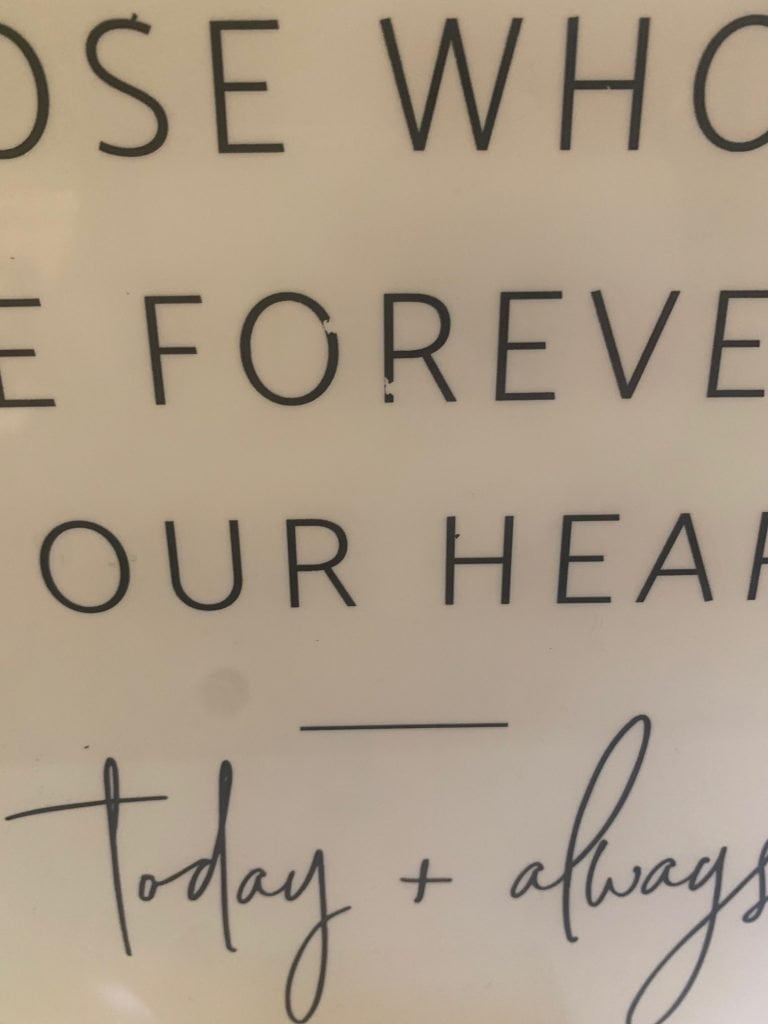 OSE WHO
E FOREVE
OUR HEAR
today + always